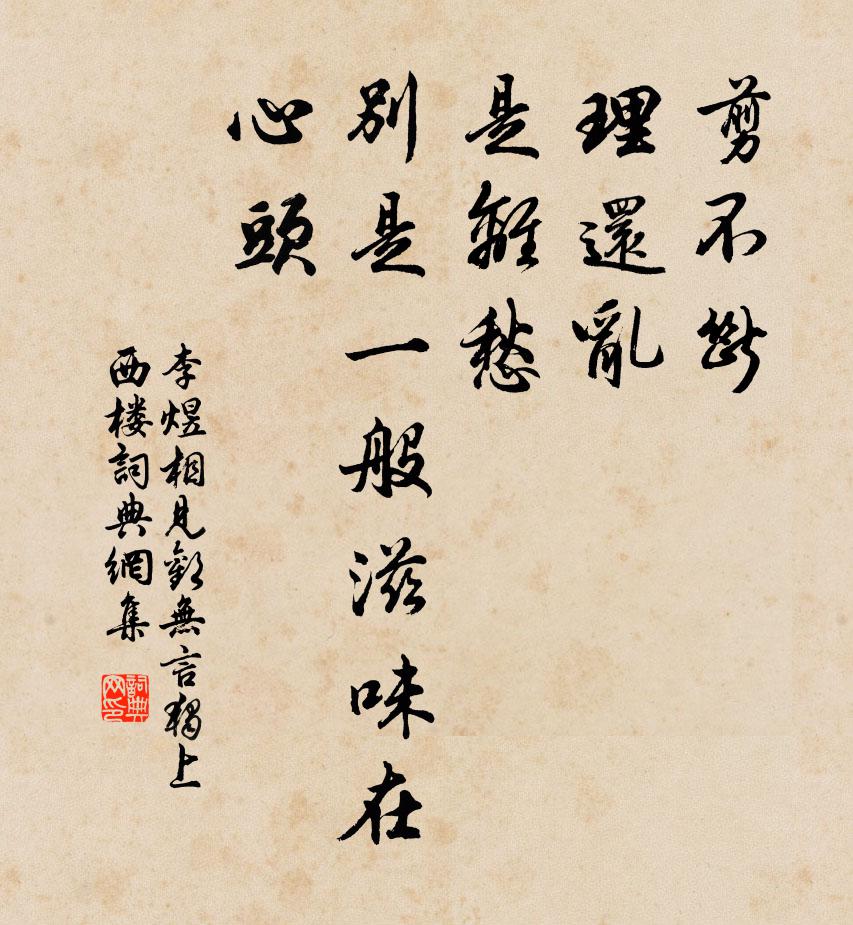 剪不斷
理還亂
是離愁
別是一般滋味在
心頭
李煜相見歡無言獨上
西楼詞典網集
詞典
网印